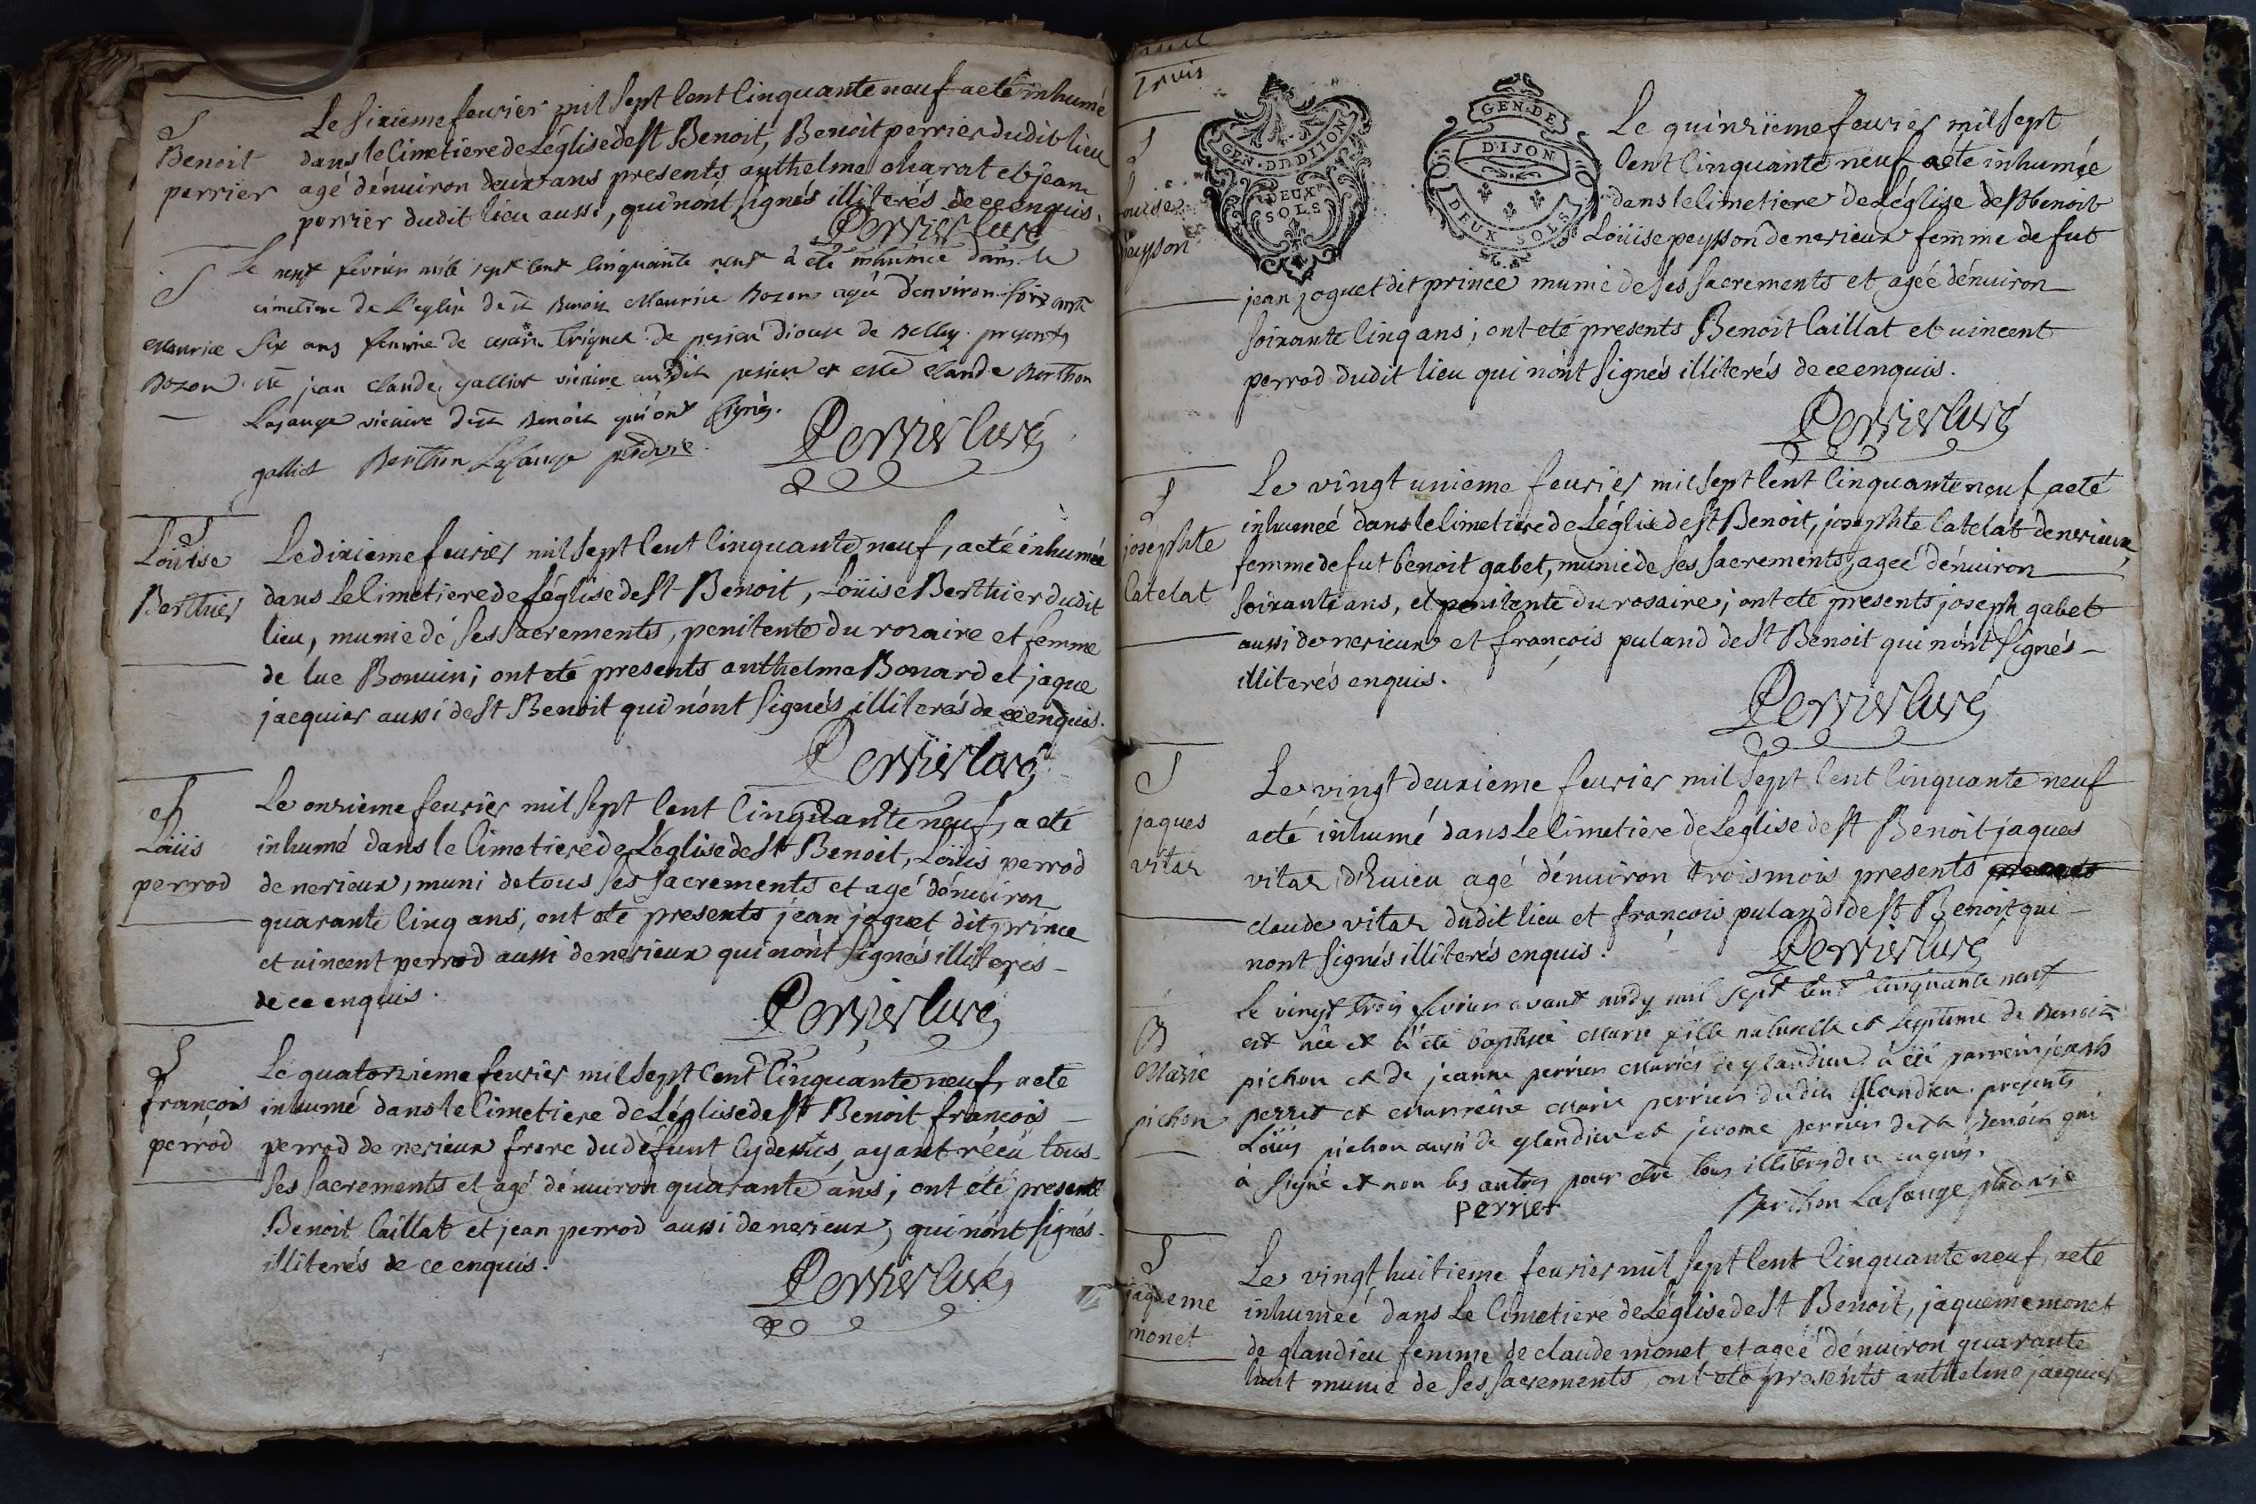 Le sixieme feurier mil sept Cent Cinquante neuf a eté inhumé
S
Benoit
perrier
dans le Cimetiere de L'église de st Benoit, Benoit perrier dudit lieu
agé d'énuiron deux ans presents anthelme charat et jean
perrier dudit lieu aussi, qui n'ónt signés illiterés de ce enquis.
Perrier Curé
S
Maurice
Bozon
Le neuf fevrier mile sept cent cinquante neuf à été inhumée dans le
cimetiere de L'eglise de st Benoit Maurice Bozon agée d'environ soixante
six ans femme de Triquet de diocese de Belley. presents
jean claude galliot vicaire audit et claude Berthon
Lasauge vicaire de st Benoit qui ont signés.
galliot Berthon Lasauge
Perrier Curé
S
Loüise
Berthier
Le dixieme feurier mil sept Cent Cinquante neuf, a eté inhumée
dans Le Cimetiere de L'église de st Benoit, Loüise Berthier dudit
lieu, munie de ses sacrements, penitente du rozaire et femme
de luc Bonuin; ont eté presents anthelme Bonard et jaque
jacquier aussi de st Benoit qui n'ónt signés illiterés de ce enquis.
Perrier Curé
S
Loüis
perrod
Le onzieme feurier mil sept Cent Cinquante neuf, a eté
inhumé dans le Cimetiere de L'église de st Benoit, Loüis perrod
de nerieux, muni de tous ses sacrements et agé d'énuiron
quarante Cinq ans, ont eté presents jean joquet dit prince
et uincent perrod aussi de nerieux qui n'ónt signés illiterés
de ce enquis.
Perrier Curé
S
françois
perród
Le quatorzieme feurier mil sept Cent Cinquante neuf, a eté
inhumé dans le Cimetiere de L'église de st Benoit françois
perrod de nerieux frere du défunt Cydessus, ayant récu tous
ses sacrements et agé d'énuiron quarante ans; ont été presents
Benoit Caillat et jean perrod aussi de nerieux; qui n'ónt signés
illiterés de ce enquis.
Perrier Curé
Trois
GEN. DE DIJON
DEUX
SOLS
GEN. DE
DIJON
DEUX SOLS
S
Louise
Peysson
Le quinziieme feurier mil sept
Cent Cinquante neuf a eté inhumée
dans le Cimetiere de L'église de st benoit
Loüise peysson de nerieux femme de fut
jean joquet dit prince munie de ses sacrements et agée d'énuiron
soixante Cinq ans; ont eté presents Benoit Caillat et uincent
perrod dudit lieu qui n'ónt signés illiterés de ce enquis.
Perrier Curé
S
josephte
Catelat
Le vingt unieme feurier mil sept Cent Cinquante neuf a eté
inhumeé dans le Cimetiere de L'église de st Benoit, josephte Catelat de nerieux,
femme de fut benoit gabet, munie de ses sacrements, ageé d'énuiron
soixante ans, et penitente du rosaire; ont eté presents joseph gabet
aussi de nerieux et françois puland de st Benoit qui n'ónt signés
illiterés enquis.
Perrier Curé
S
jaques
vitaz
Le vingt deuxieme feurier mil sept Cent Cinquante neuf
a eté inhumé dans Le Cimetiere de L'eglise de st Benoit jaques
vitaz agé d'énuiron trois mois presents
claude vitaz dudit lieu et françois puland de st Benoit qui
nont signés illiterés enquis.
Perrier Curé
B
Marie
pichon
Le vingt trois fevrier avant midy mil sept cent cinquante neuf
est née et à été baptisée Marie fille naturelle et legitime de Benoit
pichon et de jeanne perrier mariés de glandieu à été parrein joseph
perret et Marreine Marie perrier dudit glandieu. presents
Loüis pichon aussi de glandieu et jerome perrier de st Benoit qui
à signé et non les autres pour etre tous illiterés de ce enquis.
perrier Berthon Lasauge
S
jaqueme
monet
Le vingt huitieme feurier mil sept Cent Cinquante neuf, a eté
inhumeé, dans Le Cimetiere de L'église de st Benoit, jaqueme monet
de glandieu femme de claude monet et ageé d'énuiron quarante
huit munie de ses sacrements, ont eté presents anthelme jacquier